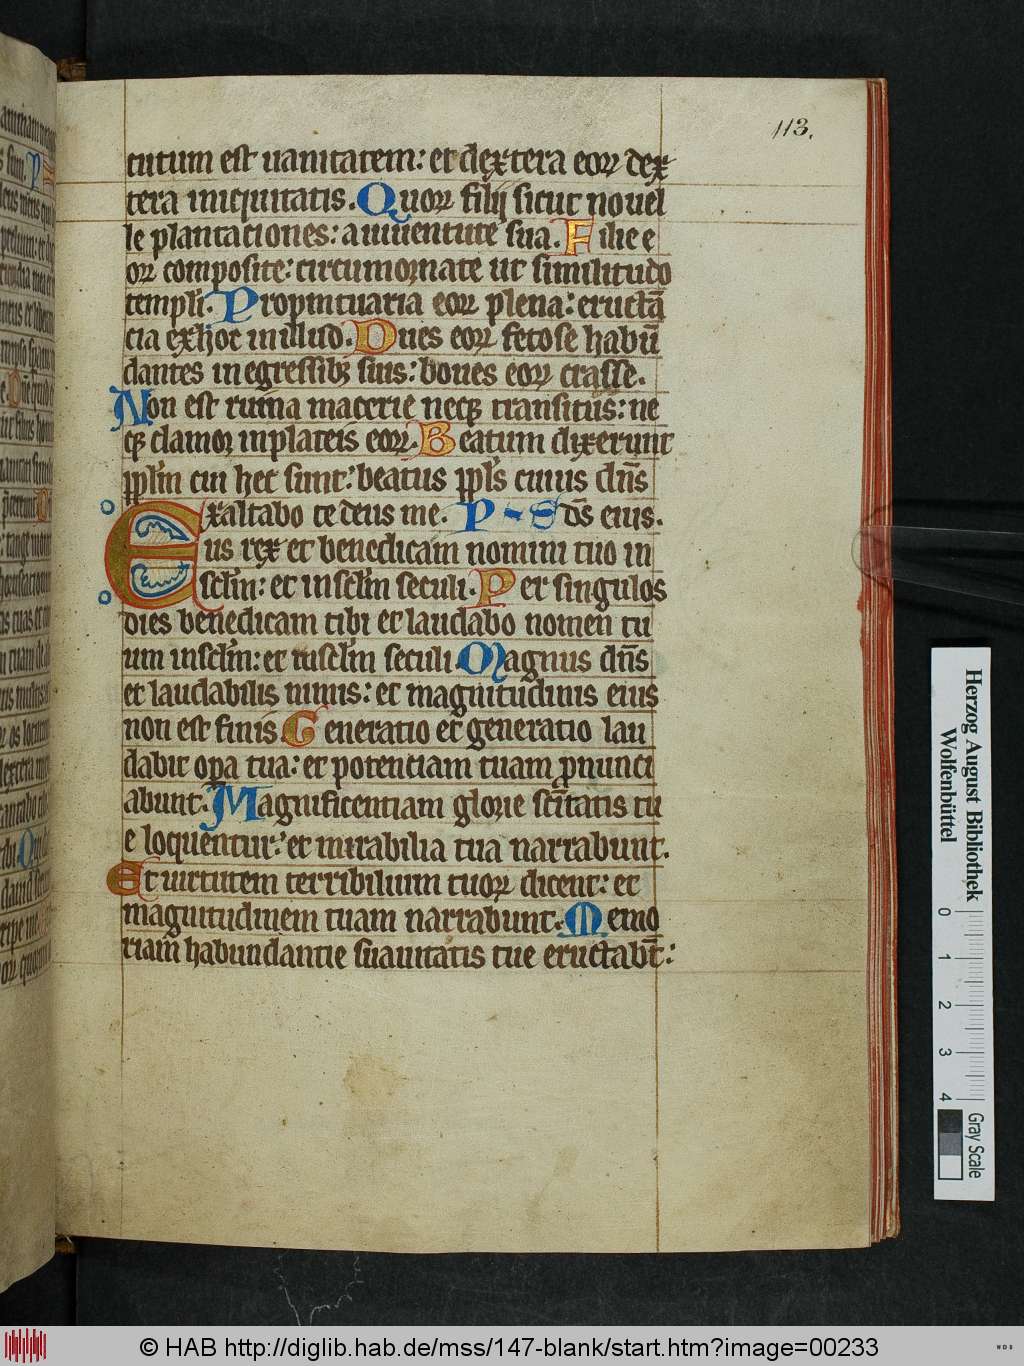 113.
cutum est uanitatem: et dextera eoꝝ dex
tera iniquitatis. Quoꝝ filij sicut nouel
le plantaciones: a iuuentute sua. Filie e
oꝝ composite: circumornate ut similitudo
templi. Promptuaria eoꝝ plena: eructā
cia ex hoc in illud. Oues eoꝝ fetose habū
dantes in egressibꝫ suis: boues eoꝝ crasse.
Non est ruina macerie neqꝫ transitus: ne
qꝫ clamor in plateis eoꝝ. Beatum dixerunt
ppl̄m cui hec sunt: beatus ppl̄s cuius dn̄s
Exaltabo te deus me. P S ds̄ eius.
us rex et benedicam nomini tuo in
scl̄m: et in scl̄m seculi. Per singulos
dies benedicam tibi et laudabo nomen tu
um in scl̄m: et in scl̄m seculi. Magnus dn̄s
et laudabilis nimis: et magnitudinis eius
non est finis. Generatio et generatio lau
dabit oꝑa tua: et potentiam tuam ꝓnunci
abunt. Magnificentiam glorie sc̄itatis tu
e loquentur: et mirabilia tua narrabunt.
Et uirtutem terribilium tuoꝝ dicent: et
magnitudinem tuam narrabunt. Memo
riam habundantie suauitatis tue eructabt̄:
Herzog August Bibliothek
Wolfenbüttel
0 1 2 3 4
Gray Scale
© HAB http://diglib.hab.de/mss/147-blank/start.htm?image=00233